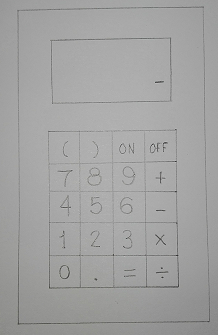 -
( ) ON OFF
7 8 9 +
4 5 6 -
1 2 3 ×
0 . = ÷